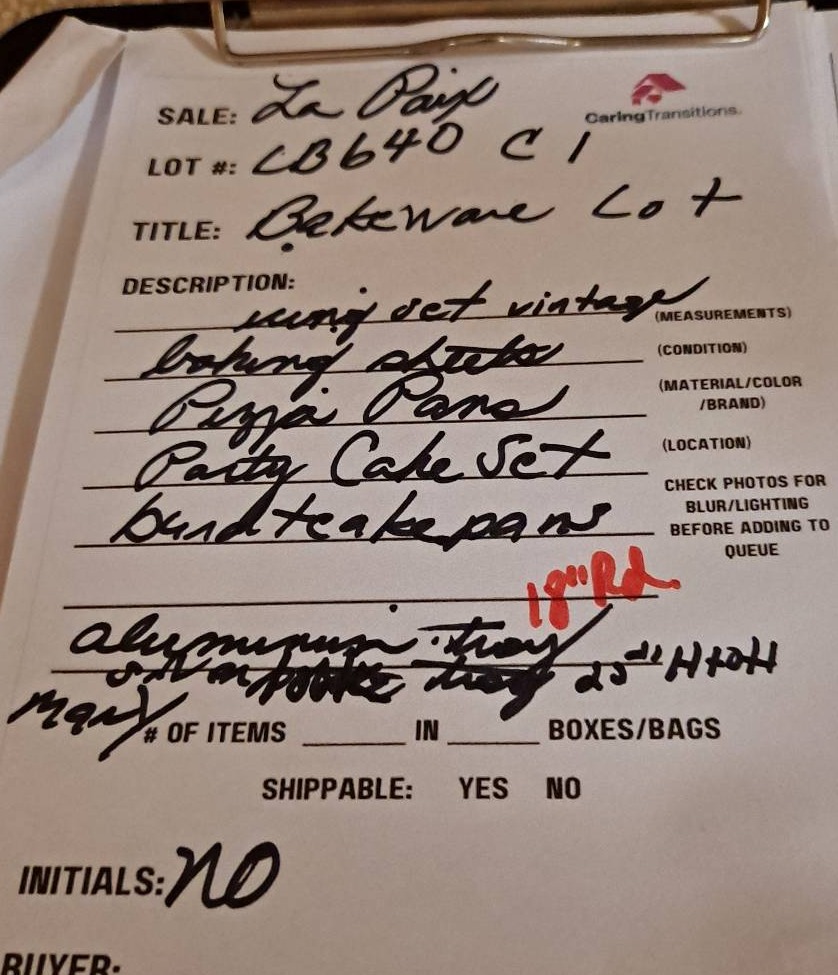 SALE: La Paix
CaringTransitions.
LOT #: CB640 C 1
TITLE: Bakeware Lot
DESCRIPTION:
icing set vintage (MEASUREMENTS)
baking sheets (CONDITION)
Pizza Pans (MATERIAL/COLOR
/BRAND)
Party Cake Set (LOCATION)
bundtcake pans CHECK PHOTOS FOR
BLUR/LIGHTING
BEFORE ADDING TO
QUEUE
18" Rd.
aluminum tray
tray 25"
Many # OF ITEMS IN BOXES/BAGS
SHIPPABLE: YES NO
INITIALS: NO
BUYER: